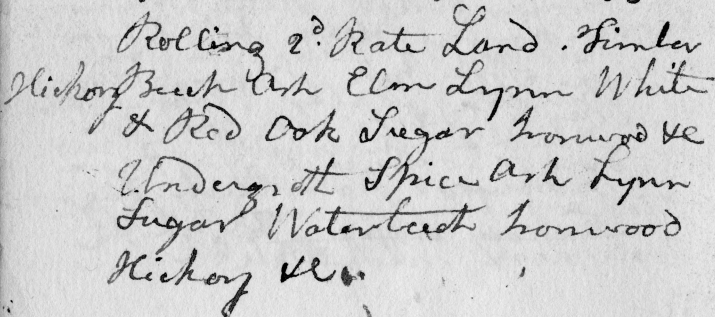 Rolling 2d. Rate Land. Timber
Hickory Beech Ash Elm Lynn White
& Red Oak Sugar Ironwood &c
Undergroth Spice Ash Lynn
Sugar Waterbeech Ironwood
Hickory &c.